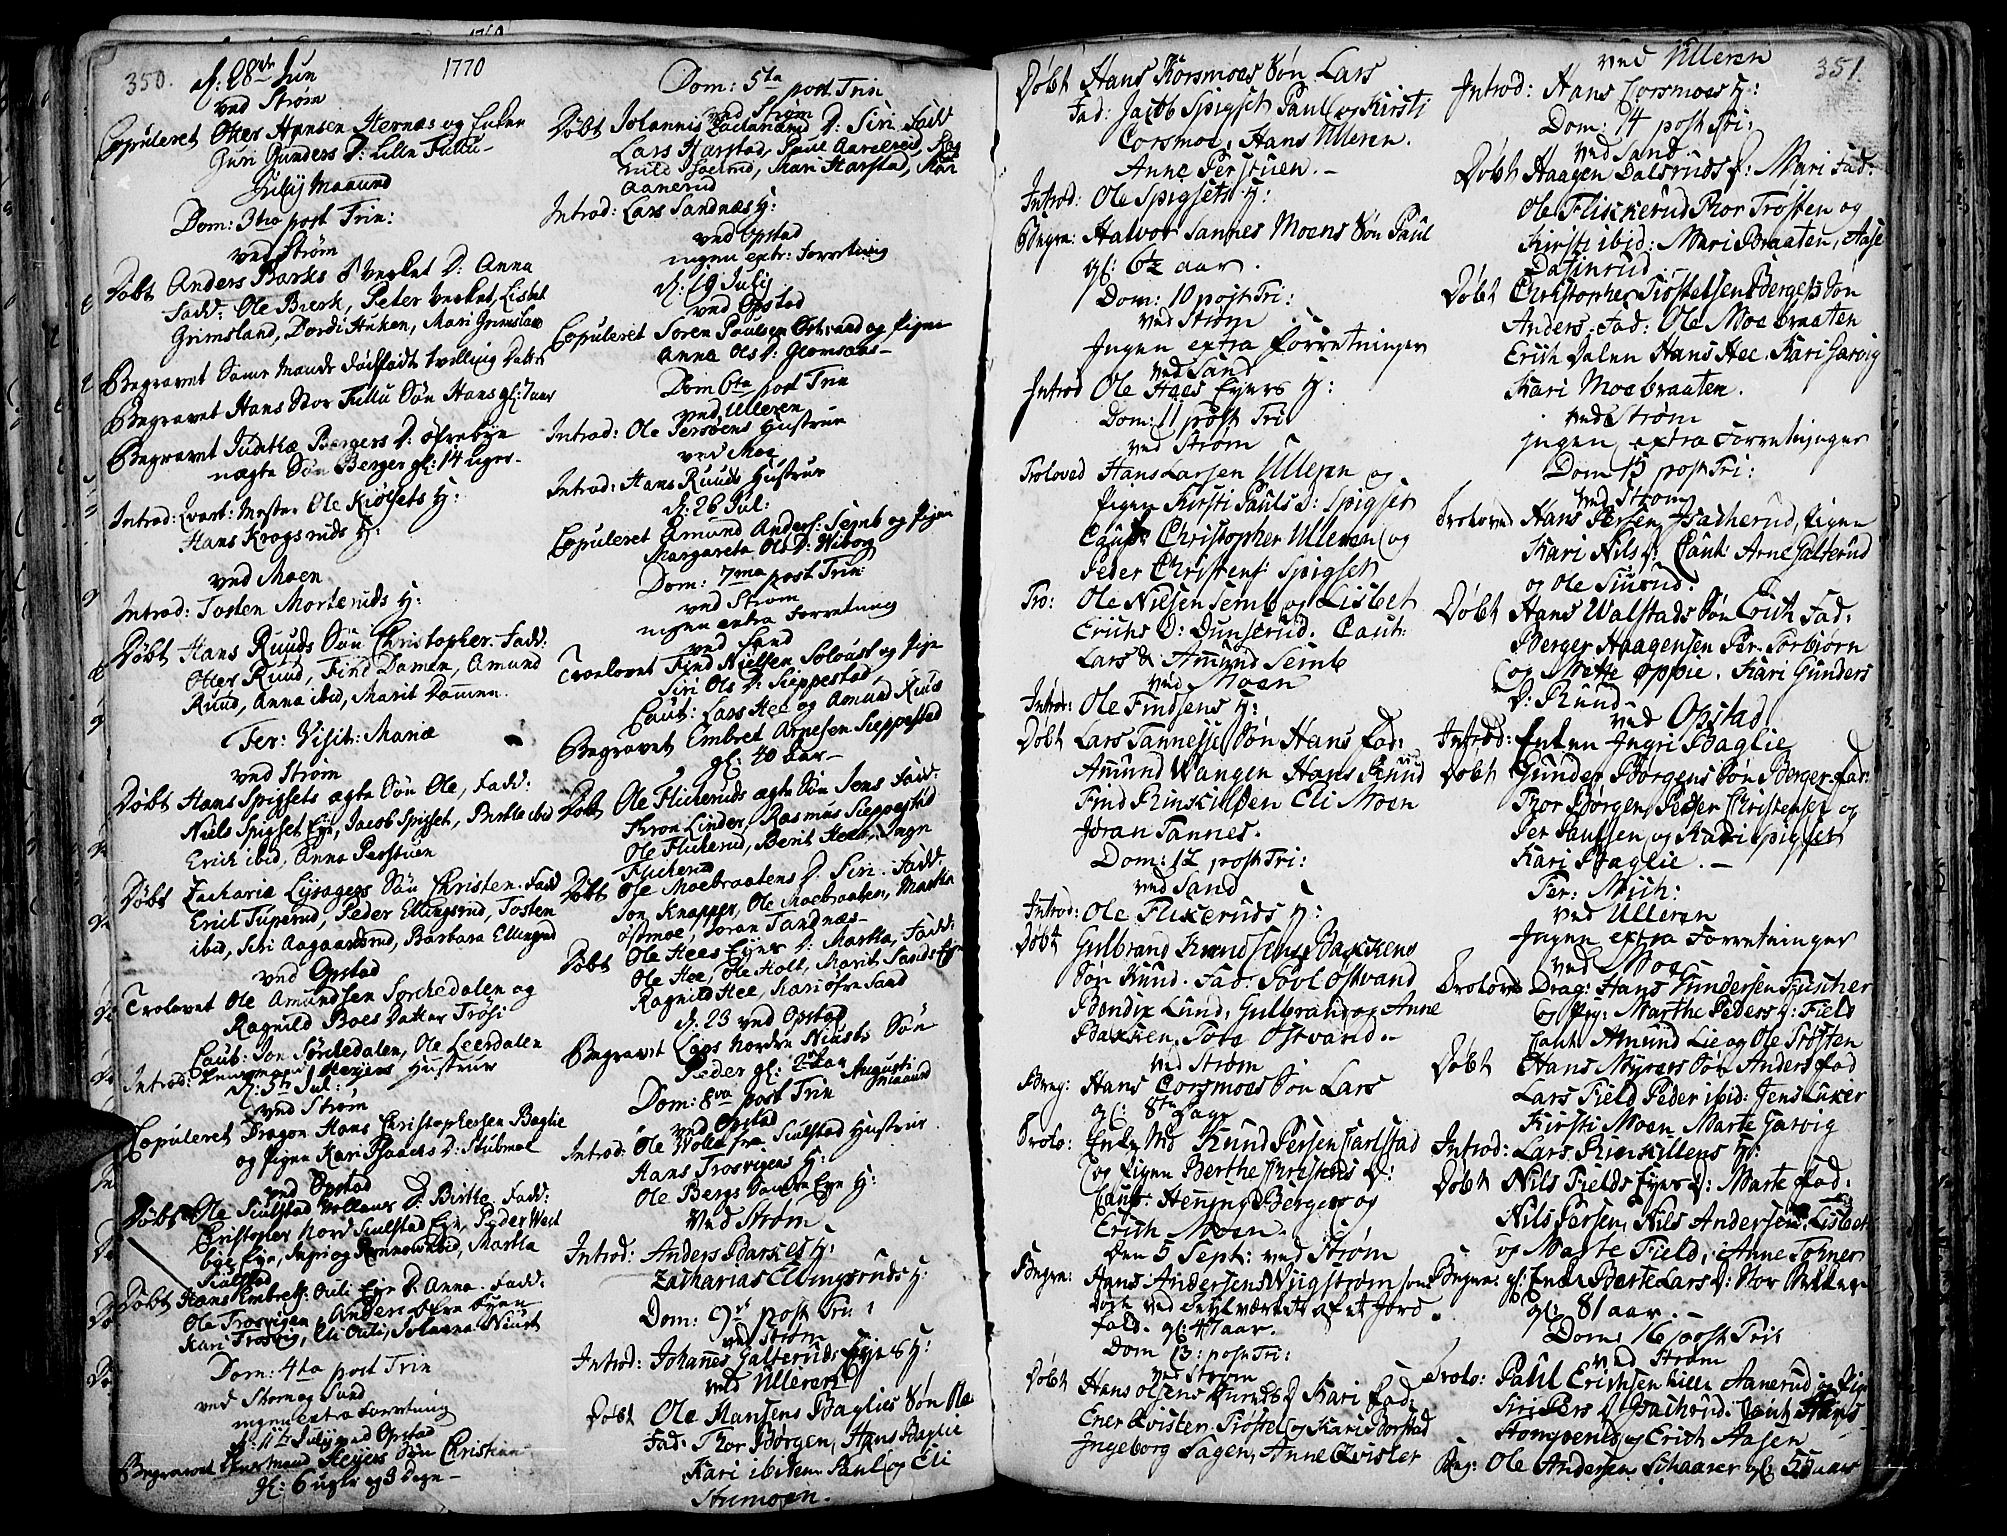 350.
1770
d: 28de Jun
ved Strøm
Copuleret Otter Hansen Sternæs og Enken
Juri Gunders D: Lille Fullu
Julij Maanud
Dom: 3tia post Trin:
ved Strøm
Døbt Anders Barkes Eye D: Anna
Fadd: Ole Bierk, Peter Lisbet
Grimsland, Dordi Huken, Mari Grimsland
Begravet Samme Mands dødfødt tvilling Datter
Begravet Hans Stor Fullu Søn Hans gl: 7 uger
Begravet Judithæ Bergers D: øfrebyn
nægte Søn Berger gl: 14 uger
Introd: Qvart: Mester Ole Kiølsets H:
Hans Krogsruds H:
ved Moen
Introd: Tosten Morteruds H:
Døbt Hans Ruuds Søn Christopher. Fadd:
Otter Ruud, Find Damen, Amund
Ruud, Anna ibid, Marit Dammen.
Fer: Visit: Mariæ
ved Strøm
Døbt Hans Spigsets ægte Søn Ole, Fadd:
Niels Spigset Eye, Jacob Spigset, Berthe ibid
Erich ibid, Anna Perstuen
Døbt Zacharia Lysagers Søn Christen. Fadd
Erich Tuperud, Peder Ellingsrud, Tosten
ibid, Siri Aagaardsrud, Barbara Ellingsrud
ved Opstad
Trolovet Ole Amundsen Sørchedalen og
Ragnild Boes Datter Trøsi
Caut: Jon Sørchedalen, Ole Leerdalen
Introd: Lensmand Heyers Hustrue
d. 5te Jul:
ved Strøm
Copuleret Dragon Hans Christophersen Baglie
og Pigen Kari D: Stubmoe
ved Opstad
Døbt Ole Siulstad Vollens D. Birtte. Fadd:
Christopher Nord Siulstad Eye, Peder West
bye Eye, Ingri og ibid, Martha
Siulstad
Døbt Hans Embretz. Ouli Eye D. Anna. Fadd:
Ole Trosvigen, Anders Øfre Byen
Kari Trosvig, Eli Ouli, Johanna Niust
Dom: 4ta post Trin
ved Strøm og Sand
ingen extra Forretning
d: 11te Julij ved Opstad
Begravet Lensmand Heyers Søn Christian
gl: 6 uger og 3 Dage
Dom: 5ta post Trin
ved Strøm
Døbt Johannis D: Siri. Fadd
Lars Harstad, Paul Aarelsrud, Rag
nild, Mari Harstad, Mari
Aanerud
Introd: Lars Sandnæs H:
ved Opstad
ingen extr: Forretning
d. 19 Julij
ved Opstad
Copuleret Soren Paulsen Ostvand og Pigen
Anna Ols D: Glomsaas
Dom 6ta post Trin
ved Ulleren
Introd: Ole Persøens Hustrue
ved Moe
Introd: Hans Ruuds Hustrue
d. 26 Jul:
Copuleret Amund Anders: Semb og Pigen
Margareta Ols D: Wiborg
Dom: 7ma post Trin
ved Strøm
ingen extra Forretning
ved Sand
Troelovet Find Nielsen Soloust og Pige
Siri Ols D: Sieppestad
Caut: Lars Hee og Amund Ruud
Begravet Embret Arnesen Sieppestad
gl: 40 aar
Døbt Ole Flicheruds ægte Søn Jens Fadd.
Thron Linder, Rasmus Sieppestad
Ole Flicherud, Berit Hee, Ingn
Flicherud
Døbt Ole Moebraatens D. Siri. Fadd.
Jon Knapper, Ole Moebraaten, Martha
Østmoe, Joran Sandnæs
Døbt Ole Hees Eyes D. Martha, Fadd:
Ole Hee, Ole Holt, Marit Sands Eye
Ragnild Hee, Kari øfre Sand
d. 23 ved Opstad
Begravet Lars Nordre Niusts Søn
Peder gl: 2 Aar
Augusti
Maaned
Dom: 8va post Trin
ved Opstad
Introd: Ole Wolen fra Siulstad Hustrue
Hans Trosvigens H:
Ole Bergs Sander Eye H:
Ved Strøm
Introd: Anders Barkes H:
Zacharias Elingsruds H:
Dom: 9de post Tri:
ved Strøm
Introd: Johannes Galteruds Eyes H:
ved Ulleren
Døbt Ole Hansens Baglies Søn Ole
Fad: Thor Børgen, Hans Baglie
Kari ibidem Paul og Eli
Stumoen.
351.
Døbt Hans Korsmoes Søn Lars
Fad: Jacob Spigset Paul og Kirsti
Corsmoe, Hans Ulleren.
Anne Perstuen.
Introd: Ole Spigsets H:
Begra: Halvor Sannes Moens Søn Paul
gl: 6½ aar.
Dom: 10 post Tri:
ved Strøm
Ingen extra Forretninger
ved Sand
Introd Ole Haes Eyers H:
Dom: 11 post Tri
ved Strøm
Troloved Hans Larsen Ulleren og
Pigen Kirsti Pauls D: Spigset
Caut: Christopher Ulleren og
Peder Christens: Spigset
Tro: Ole Nilsen Semb og Lisbet
Erichs D: Dunserud. Caut:
Lars & Amund Semb
ved Moen
Introd: Ole Findsens H:
Døbt Lars Tannesje Søn Hans Fad:
Amund Wangen Hans Knud
Find Rinskilden Eli Moen
Jøran Tannes.
Dom: 12 post Tri:
ved Sand
Introd: Ole Flikeruds H:
Døbt Gulbrand Knudsens Backens
Søn Knud. Fad: Povl Ostvand
Bendix Lund, Gulbrand og Anne
Backen, Tora Ostvand.
ved Strøm
Begr: Hans Corsmoes Søn Lars
gl: 8te Dage
Trolo: Enke Md Knud Persen Carlstad
og Pigen Berthe D:
Caut: Hening Bergers og
Erich Moen.
Den 5 Sept: ved Strøm
Begra: Hans Andersens Wiigstrøm som
døde ved af et Jord
fald. gl: 47 aar.
Dom 13: post Tri:
ved Strøm
Døbt Hans Olsens D Kari Fad:
Ener Qvisten. Trøstel og Kari Borstad
Ingeborg Sagen, Anne Qvister
ved Ulleren
Introd: Hans Corsmoes H:
Dom: 14 post Tri:
ved Sand.
Døbt Haagen Dalsruds D: Mari Fad:
Ole Flickerud Thor Trøsten og
Kirsti ibid: Mari Braaten, Aase
Dasinrud
Døbt Christopher Trøstelsen Berget Søn
Anders. Fad: Ole Moebraaten
Erich Dalen Hans Hee. Kari Garvig
Kari Moebraaten.
ved Strøm
Ingen extra Forretninger
Dom 15 post Tri:
ved Strøm
Troloved Hans Persen Isacherud, Pigen
Kari Nils D: Caut: Arne Galterud
og Ole Siurud.
Døbt Hans Walstads Søn Erich Fad:
Berger Haagensen Per Torbjørn
og Mette Oppie. Kari Gunders
D: Ruud
ved Opstad
Introd: Enken Ingri Baglie
Døbt Gunder Børgens Søn Berger Fad:
Thor Børgen, Peder Christensen og
Per Paulsen og Kari Spigset
Kari Baglie.
Fer: Mich:
ved Ulleren
Ingen extra Forretninger
ved Moe
Troloved Drag: Hans Gundersen Fuscher
og Pig: Marthe Peders D: Field
Caut: Amund Lie og Ole Trøsten
Døbt Hans Myrers Søn Anders Fad
Lars Field Peder ibid: Jens Luker
Kirsti Moen, Marte Garvig
Introd: Lars Rinskillens H:
Døbt Nils Fields Eyes D: Marte Fad:
Nils Persen, Nils Andersen, Lisbet
og Marte Field, Anne Tohner
Begra: gl: Enke Barte Lars D: Stor
gl: 81 aar.
Dom: 16 post Tri:
ved Strøm
Trolo: Paul Erichsen Lille Aanerud og Pige
Siri Pers D Caut: Hans
og Erich Aasen
Beg: Ole Andersen Schaarer gl: 55 aar